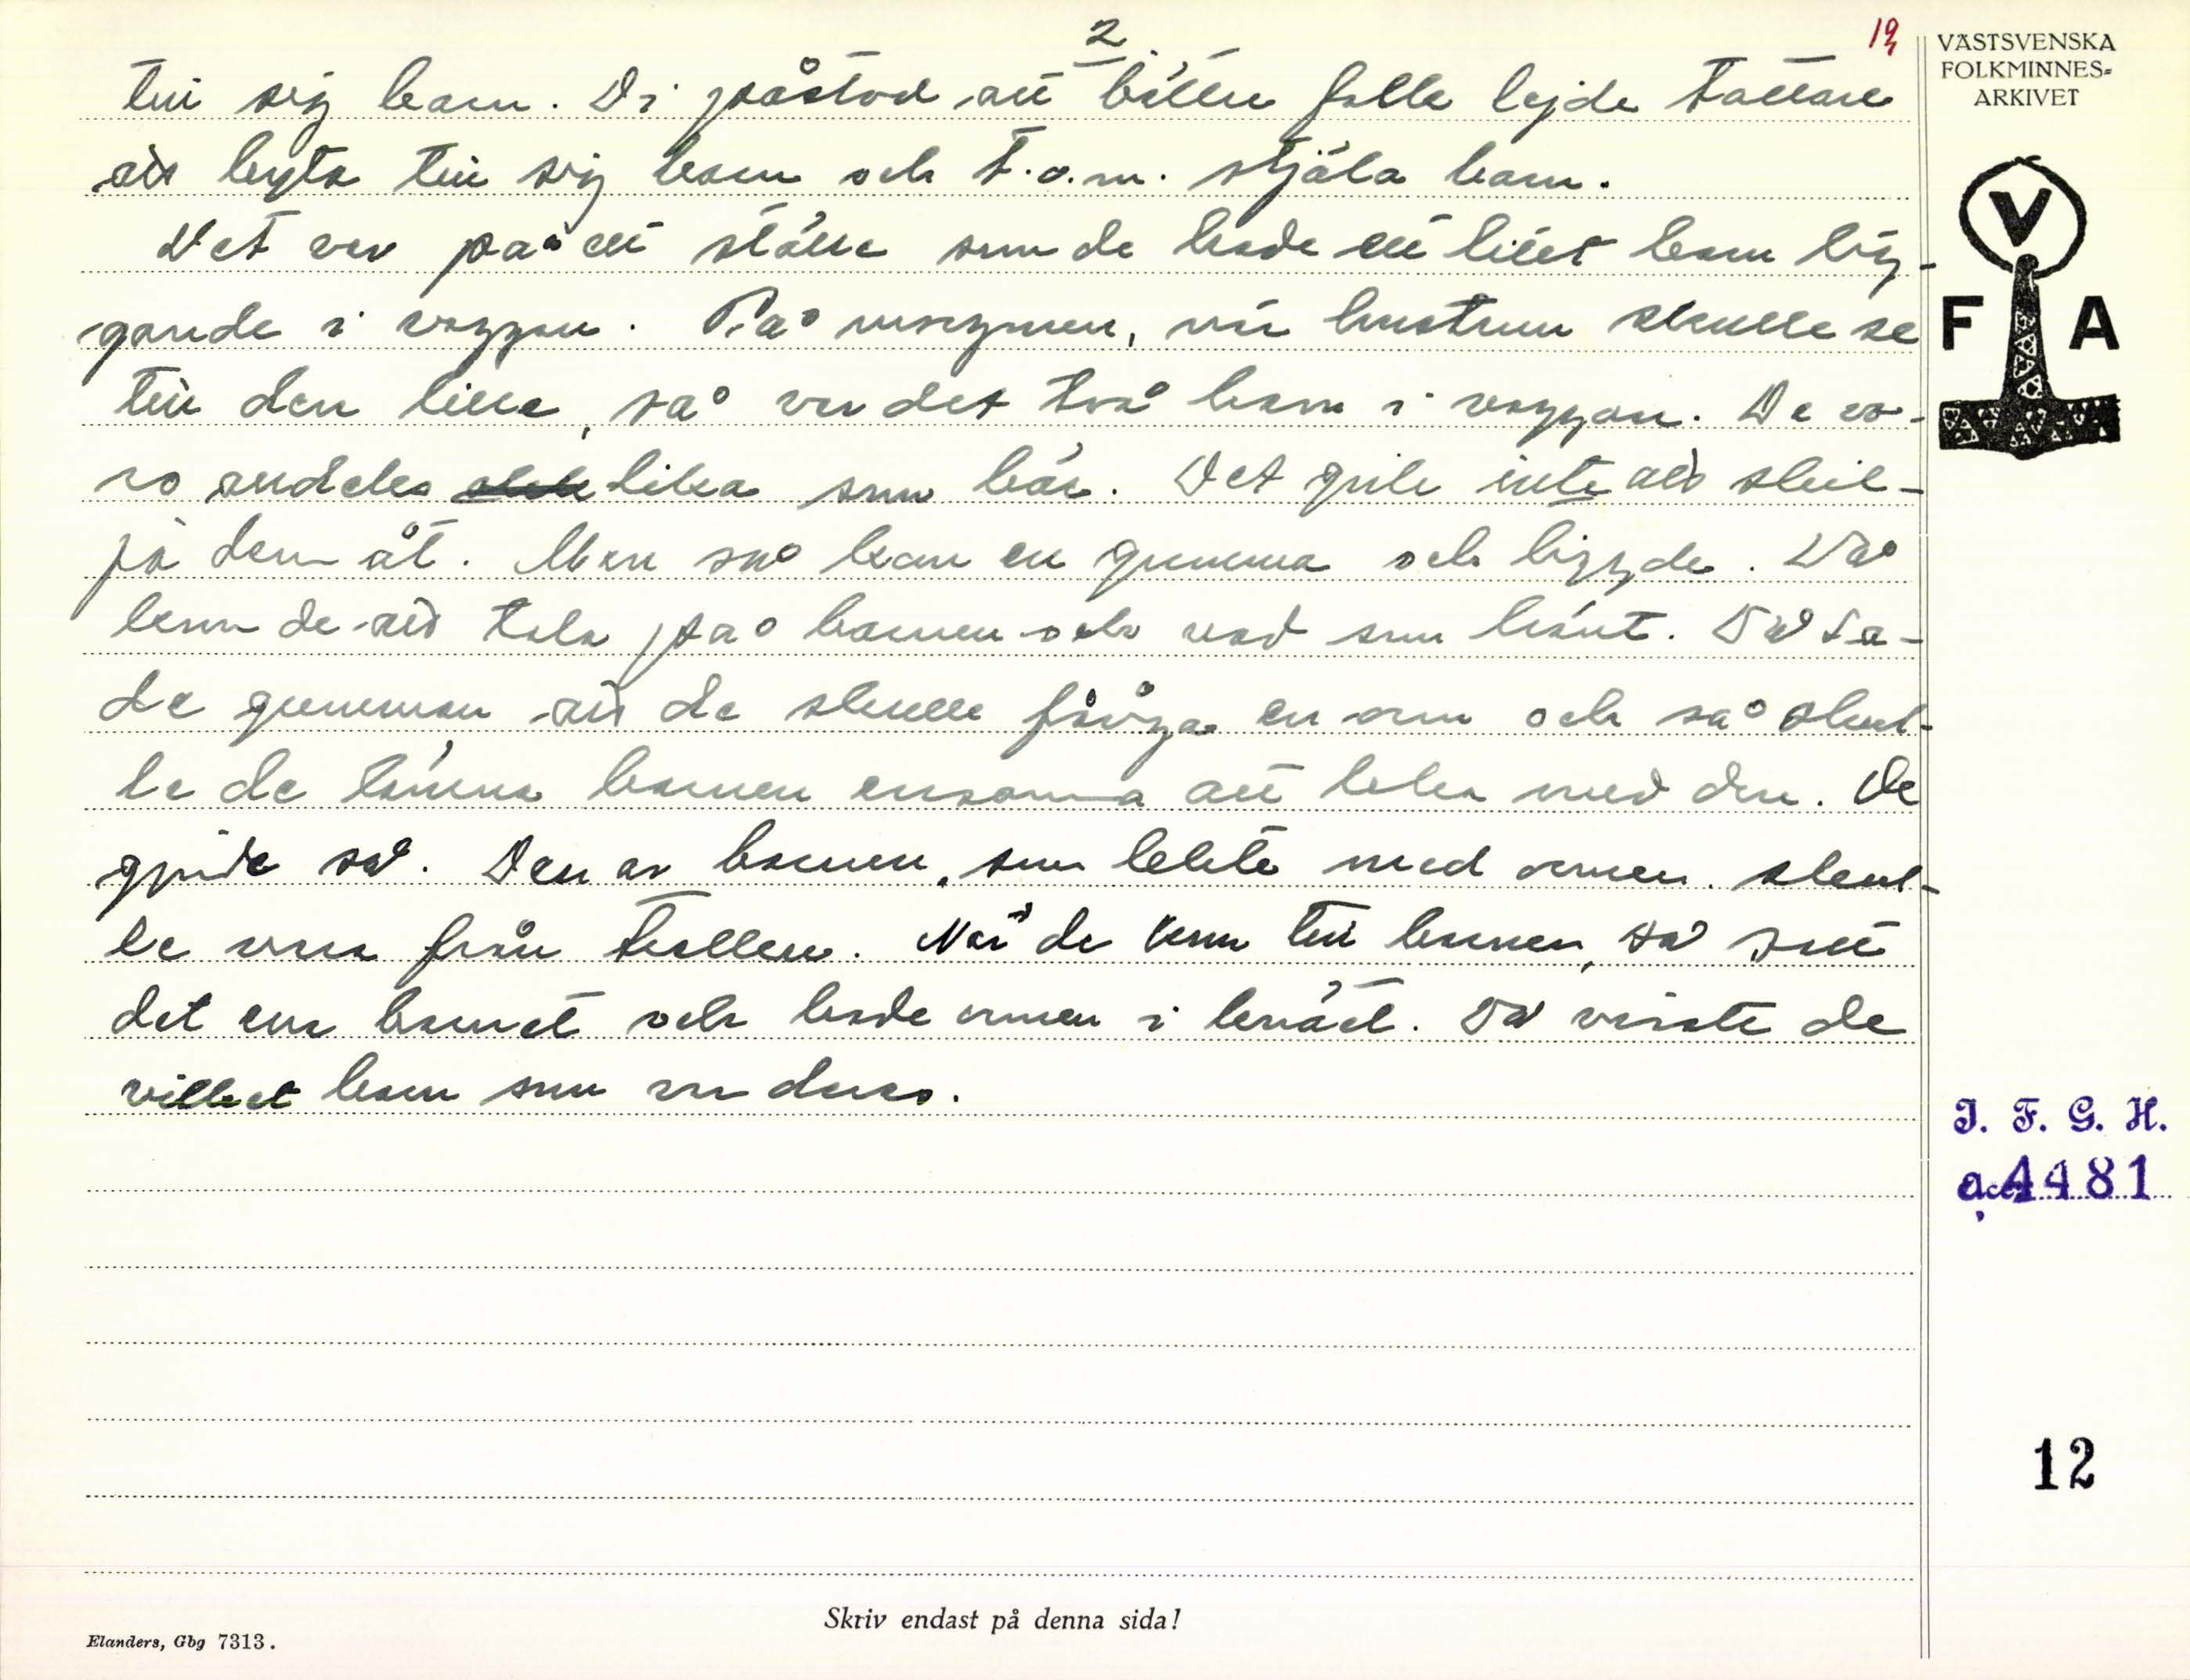 2
12
VÄSTSVENSKA
FOLKMINNES-
ARKIVET
till sig barn. Di påstod att bättre folk lejde tattare
att byta till sig barn och t.o.m. stjäla barn.
Det var på ett ställe som de hade ett litet barn lig-
gande i vaggan. På morgonen, när hustrun skulle se
till den lille, så var det två barn i vaggan. De vo-
ro alldeles lika som bär. Det gick inte att skil-
ja dem åt. Men så kom en gumma och byggde. Då
kom de att tala på barnen och vad som hänt. Då sa-
de gumman att de skulle fånga en orm och så skul-
le de lämna barnen ensamma att leka med den. De
gjorde så. Den av barnen, som lekte med ormen, skul-
le vara från trollen. När de kom till barnen, så satt
det ena barnet och hade ormen i knäet. Då visste de
vilket barn som var deras.
V
F A
I. F. G. H.
acc. 4481
12
Skriv endast på denna sida!
Elanders, Gbg 7313.